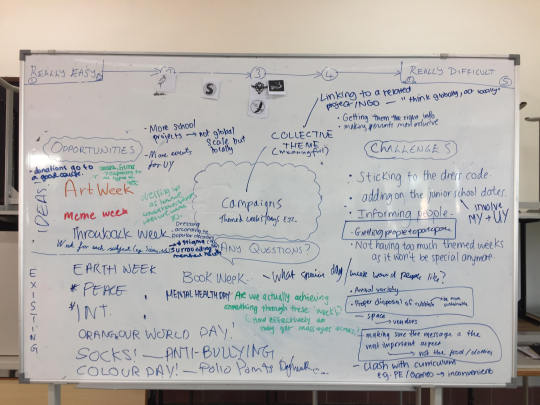 REALLY EASY
③
④
REALLY DIFFICULT
⑤
Linking to a related
project/NGO — "think globally, act locally"
• Getting them the right walls
COLLECTIVE
THEME
(meaningful)
• More school
projects → not global
scale but
locally
• More events
for UY
OPPORTUNITIES
• donations go to
a good cause.
IDEAS:
Art Week
meme week
Throwback Week
Campaigns
Themed weeks/days etc.
ANY QUESTIONS?
CHALLENGES
• Sticking to the dress code.
• adding on the junior school dates.
• Informing people
involve
MY + UY
• Getting people to participate
• Not having too much themed weeks
as it won't be special anymore.
EXISTING
EARTH WEEK
* PEACE
* INT.
ORANGE UR WORLD DAY!
SOCKS! — ANTI-BULLYING
COLOUR DAY! — Polio Points
Book Week
MENTAL HEALTH DAY
Are we actually achieving
something through these 'weeks'?
How effectively do
they get messages across?
• What
day/
week would people like?
• Annual variety
• Proper disposal of rubbish
— space
→ vendors
• making sure the message is the
most important aspect
→ not the food/clothes
— Clash with curriculum
e.g. PE/Games → inconvenient